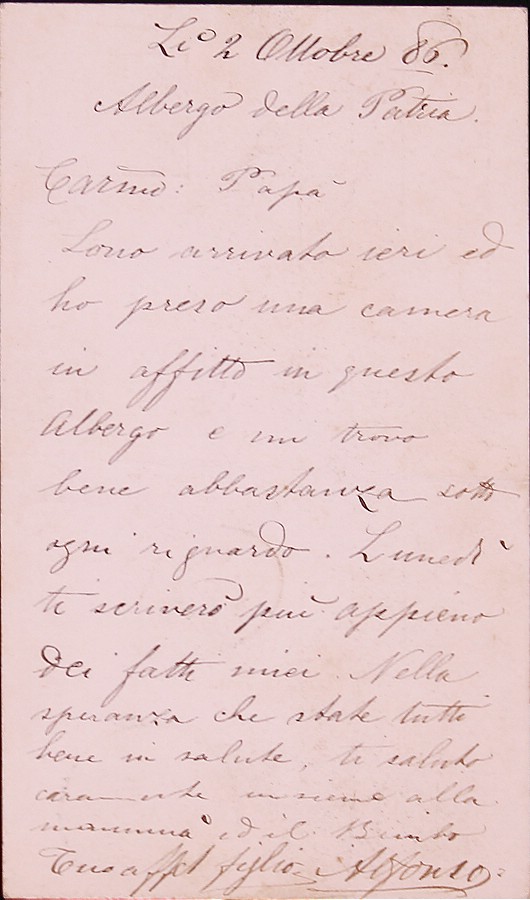 Li 2 Ottobre 86.
Albergo della Patria.
Carmo: Papà
Sono arrivato ieri ed
ho preso una camera
in affitto in questo
Albergo e mi trovo
bene abbastanza sotto
ogni riguardo. Lunedì
ti scriverò più appieno
dei fatti miei. Nella
speranza che state tutti
bene in salute, ti saluto
caramente insieme alla
mamma ed il Bimbo
Tuo aff figlio Alfonso